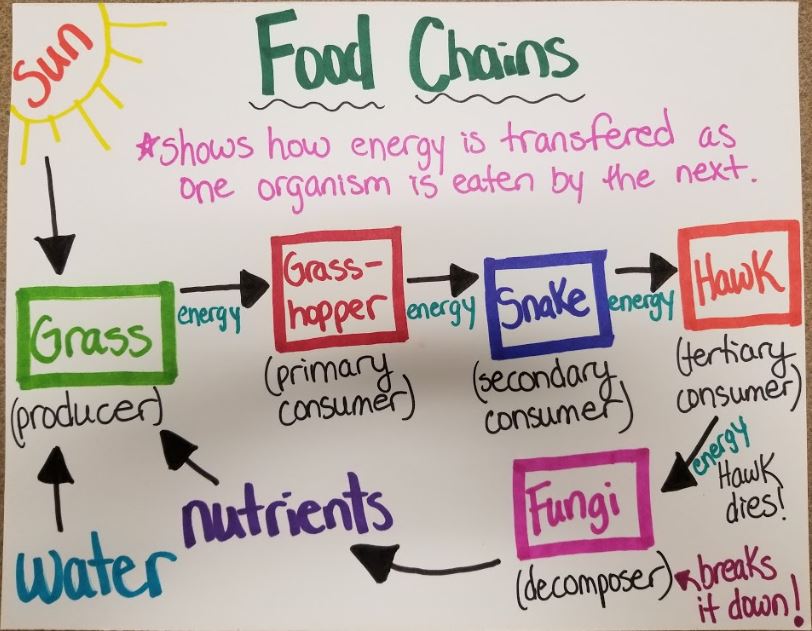 Sun
Food Chains
☆shows how energy is transfered as
one organism is eaten by the next.
Grass
(producer)
energy
Grass-
hopper
(primary
consumer)
energy
Snake
(secondary
consumer)
energy
Hawk
(tertiary
consumer)
energy
Hawk
dies!
Fungi
(decomposer)
breaks
it down!
nutrients
water